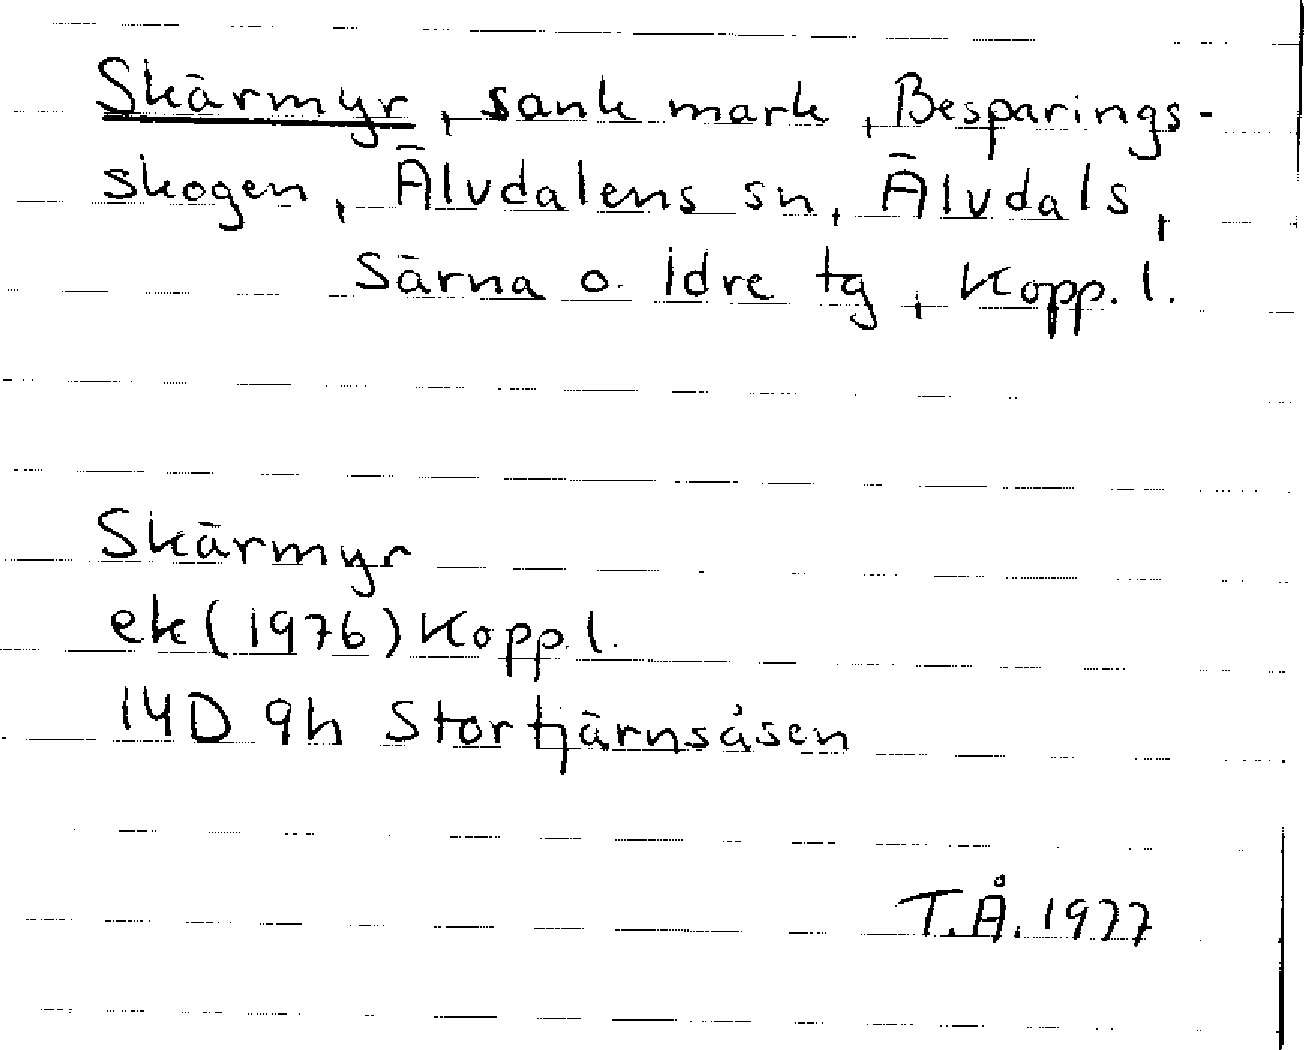 Skärmyr, sank mark, Besparings-
skogen, Älvdalens sn, Älvdals,
Särna o. Idre tg, Kopp. l.
Skärmyr
ek (1976) Kopp. l.
14D 9h Stortjärnsåsen
T.Å. 1977